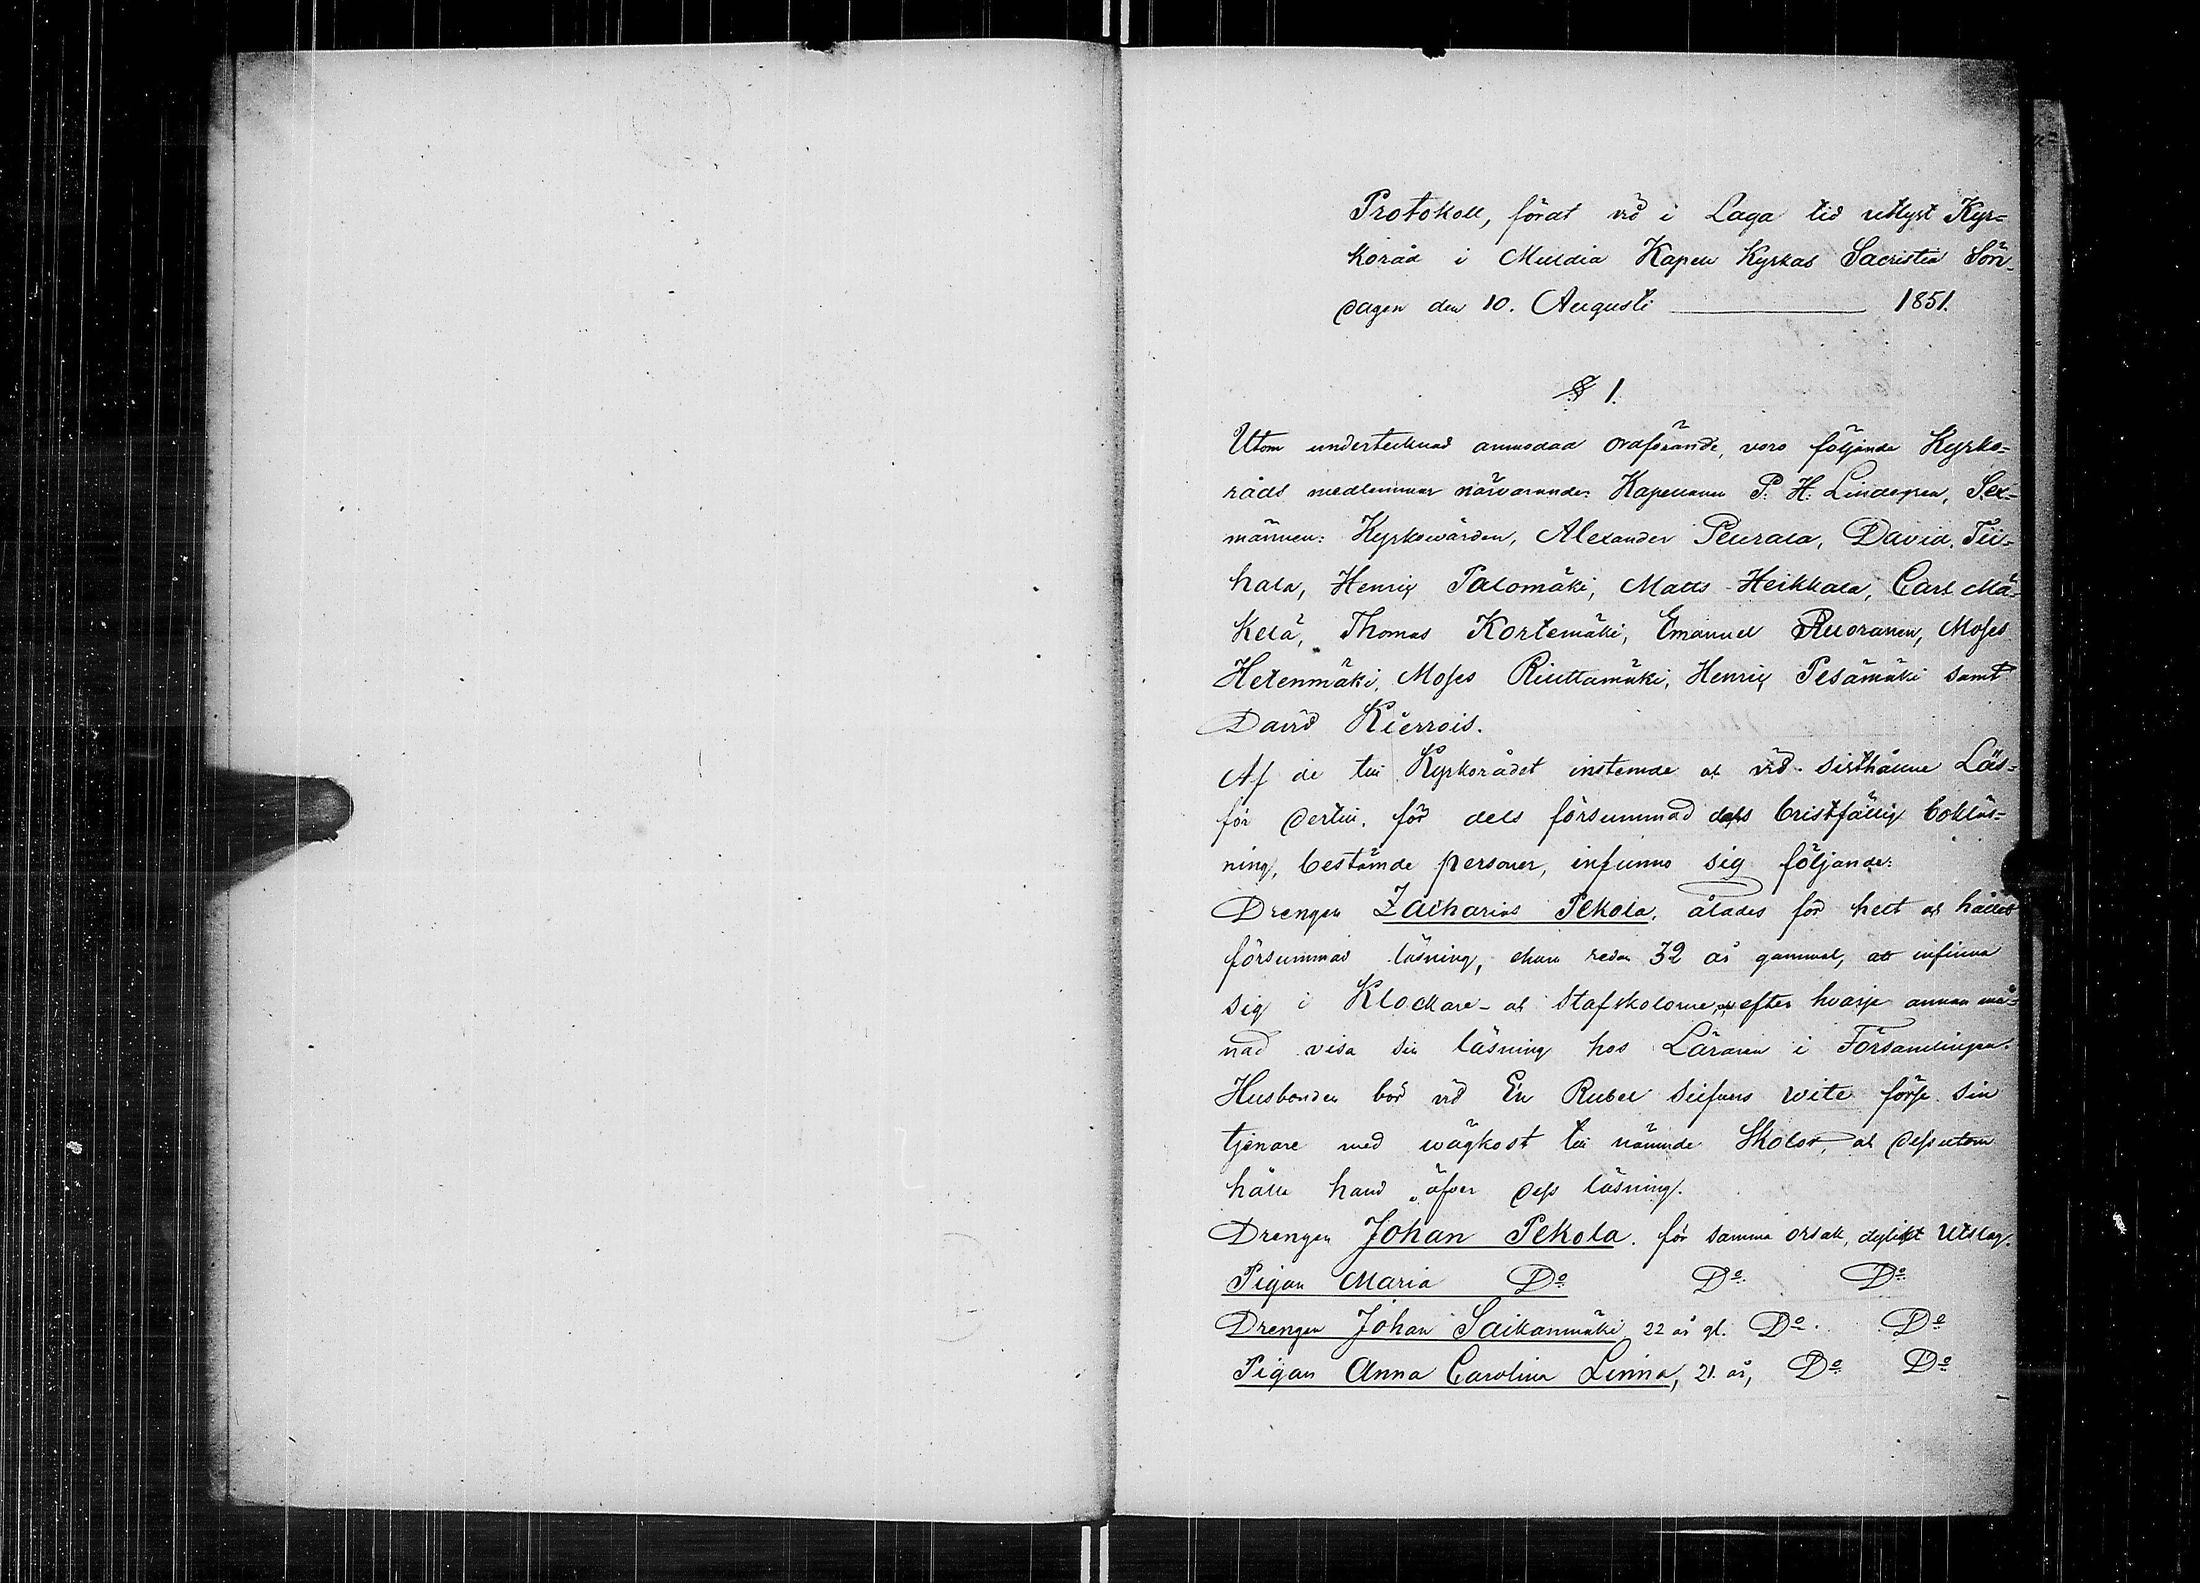 Protokoll, fördt vid i Laga tid utlyst Kyr=
koråd i Muldia Kapell Kyrkas Sacristia Sön-
dagen den 10. Augusti 1851.
§ 1.
Utom undertecknad anmodad ordförande, voro följande Kyrko=
råds medlemmar närvarande: Kapellanen P. H. Lindegren, Sex=
männen: Kyrkowärden, Alexander Peurala, David Tii=
hala, Henrix Palomäki, Matts Heikkala, Carl Mä-
kelä, Thomas Kortemäki, Emanuel Ruoranen, Moses
Hetenmäki, Moses Riuttamäki, Henrix Pesämäki samt
David Kierrois.
Af de till Kyrkorådet instemde at vid sisthållne Läs=
för dertill, för dels försummad dels bristfällig bokläs=
ning, bestämde personer, infunno sig följande:
Drengen Zacharias Pekola, ålades för helt at hållet
försummad läsning, ehuru redan 32 år gammal, att infinna
sig i Klockare- at Stafskolorne, at efter hvarje annan må=
nad visa sin läsning hos Läraren i Församlingen.
Husbonden bör vid En Rubel Silfvers wite förse sin
tjenare med wägkost till nämnde Skolor, at dessutom
hålla hand öfver dess läsning.
Drengen Johan Pekola, för samma orsak, dylikt Utslag.
Pigan Maria Do Do Do
Drengen Johan Saikanmäki 22 år gl. Do Do
Pigan Anna Carolina Linna, 21 år, Do Do